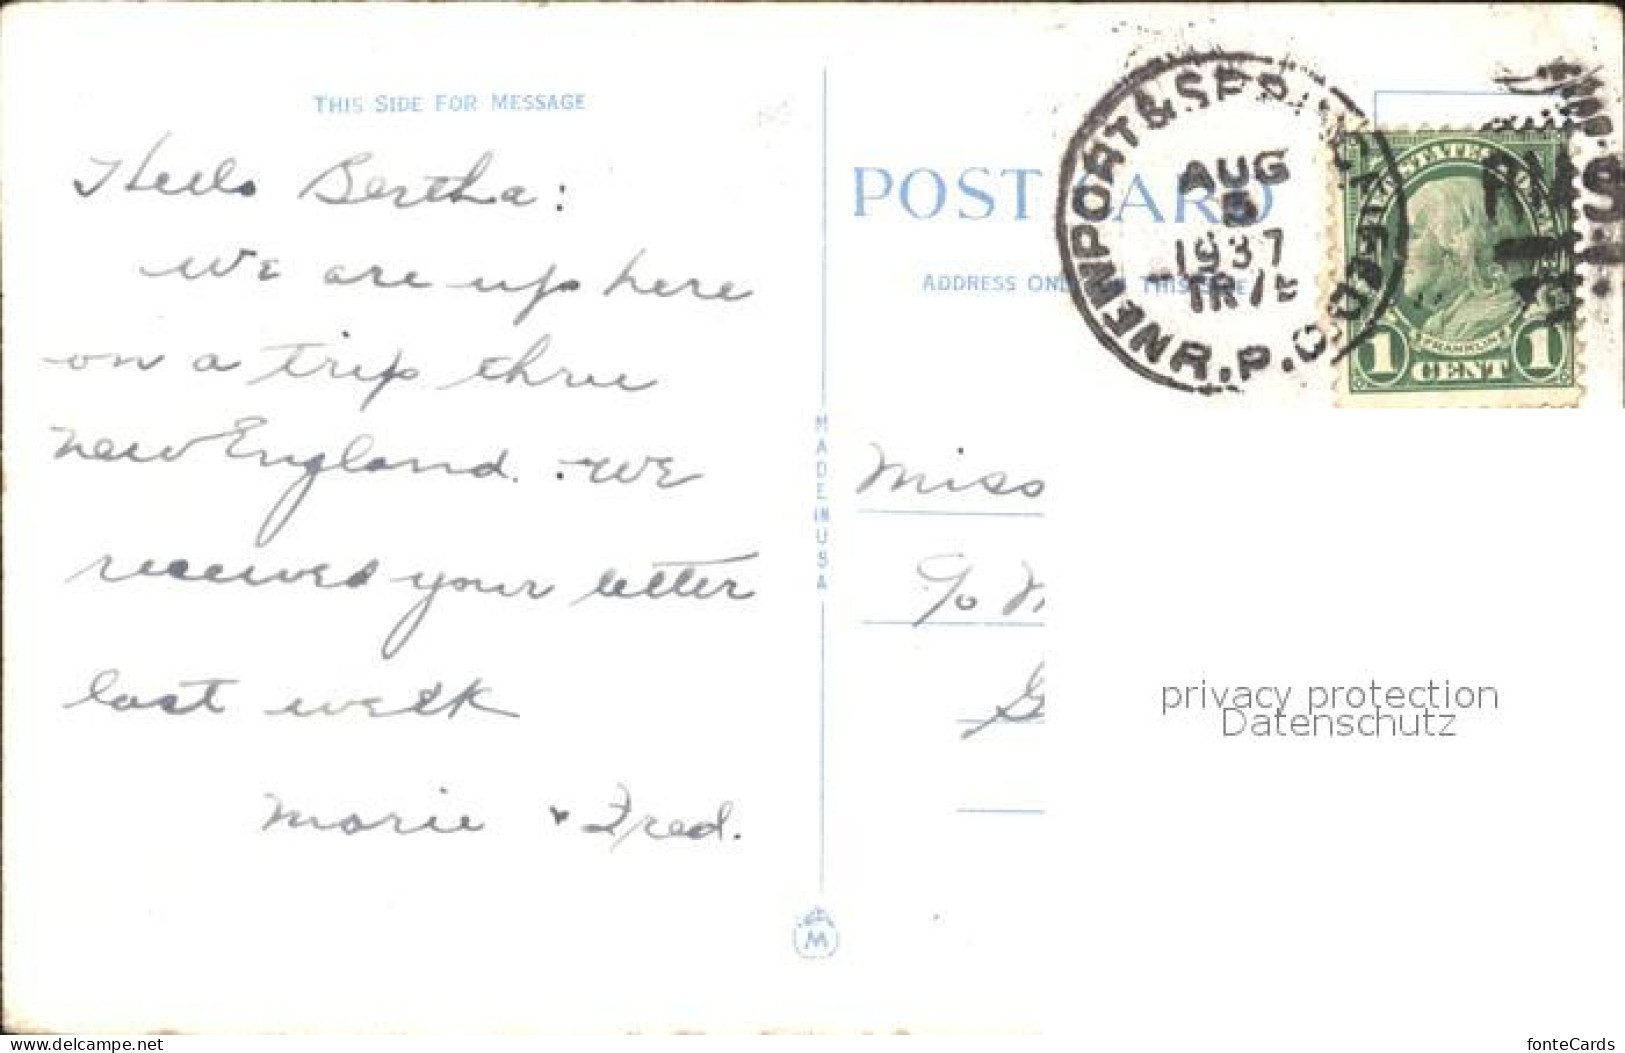 THIS SIDE FOR MESSAGE
Hello Bertha:
We are up here
on a trip thru
New England. We
received your letter
last week
Marie & Fred.
MADE IN USA
W
POST CARD
ADDRESS ON THIS
NEWPORT & SPRINGFIELD
AUG
5
1937
TR
R.P.O.
RMS
STATES
FRANKLIN
1 CENT 1
Miss
c/o M
G
privacy protection
Datenschutz
www.delcampe.net
fonteCards